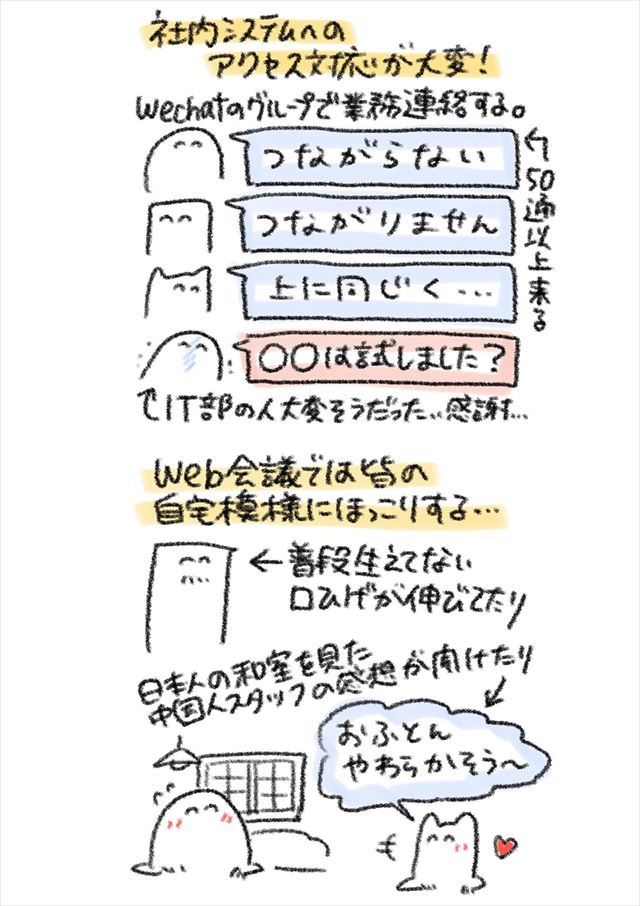 社内システムへの
アクセス対応が大変!
wechatのグループで業務連絡する。
つながらない
つながりません
上に同じく...
○○は試しました?
←50通以上来る
でIT部の人大変そうだった...感謝...
Web会議では皆の
自宅模様にほっこりする...
←普段生えてない
口ひげが伸びてたり
日本人の和室を見た
中国人スタッフの感想が聞けたり
おふとん
やわらかそう〜